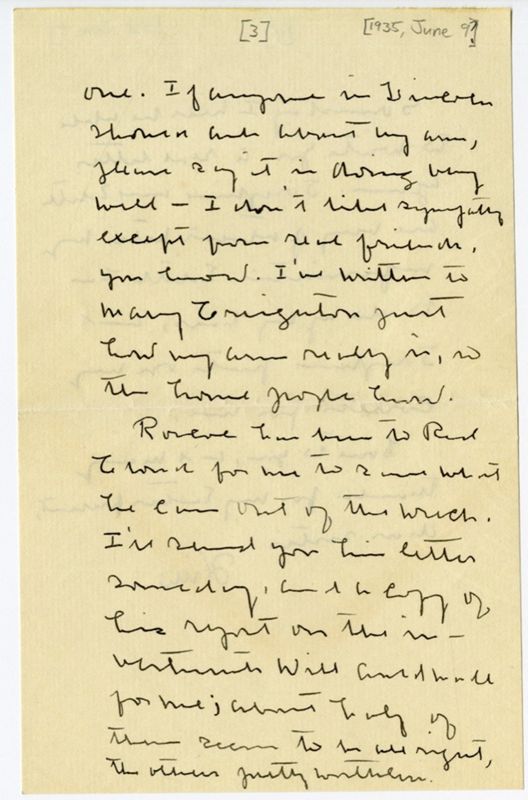 [3] [1935, June 9?]
one. If anyone in Lincoln
should ask about my arm,
please say it is doing very
well — I don't like sympathy
except from real friends,
you know. I've written to
Mary Creighton just
how my arm really is, so
the home people know.
Roscoe has been to Red
Cloud for me to save what
he can out of the wreck.
I'll send you his letter
someday, and a copy of
his report on the in-
vestments Will
for me; about half of
them seem to be all right,
the others pretty worthless.